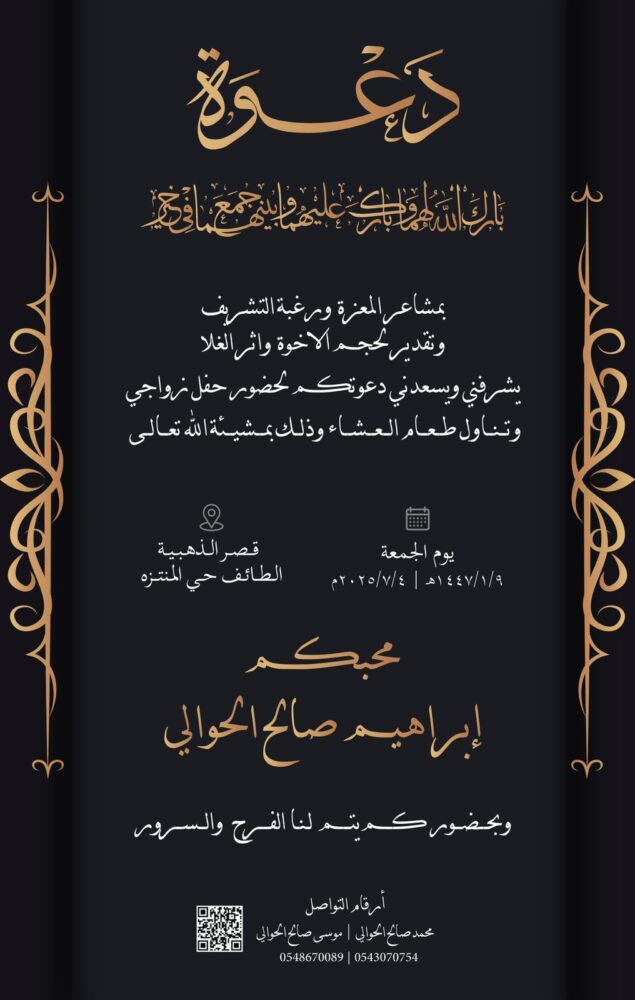 دَعْوَة
بَارَكَ اللَّهُ لَهُمَا وَبَارَكَ عَلَيْهِمَا وَجَمَعَ بَيْنَهُمَا فِي خَيْرٍ
بمشاعر المعزة ورغبة التشريف
وتقدير لحجم الاخوة واثر الغلا
يشرفني ويسعدني دعوتكم لحضور حفل زواجي
وتناول طعام العشاء وذلك بمشيئة الله تعالى
يوم الجمعة
١٤٤٧/١/٩هـ | ٢٠٢٥/٧/٤م
قصر الذهبية
الطائف حي المنتزه
محبكم
إبراهيم صالح الحوالي
وبحضوركم يتم لنا الفرح والسرور
أرقام التواصل
محمد صالح الحوالي | موسى صالح الحوالي
0548670089 | 0543070754